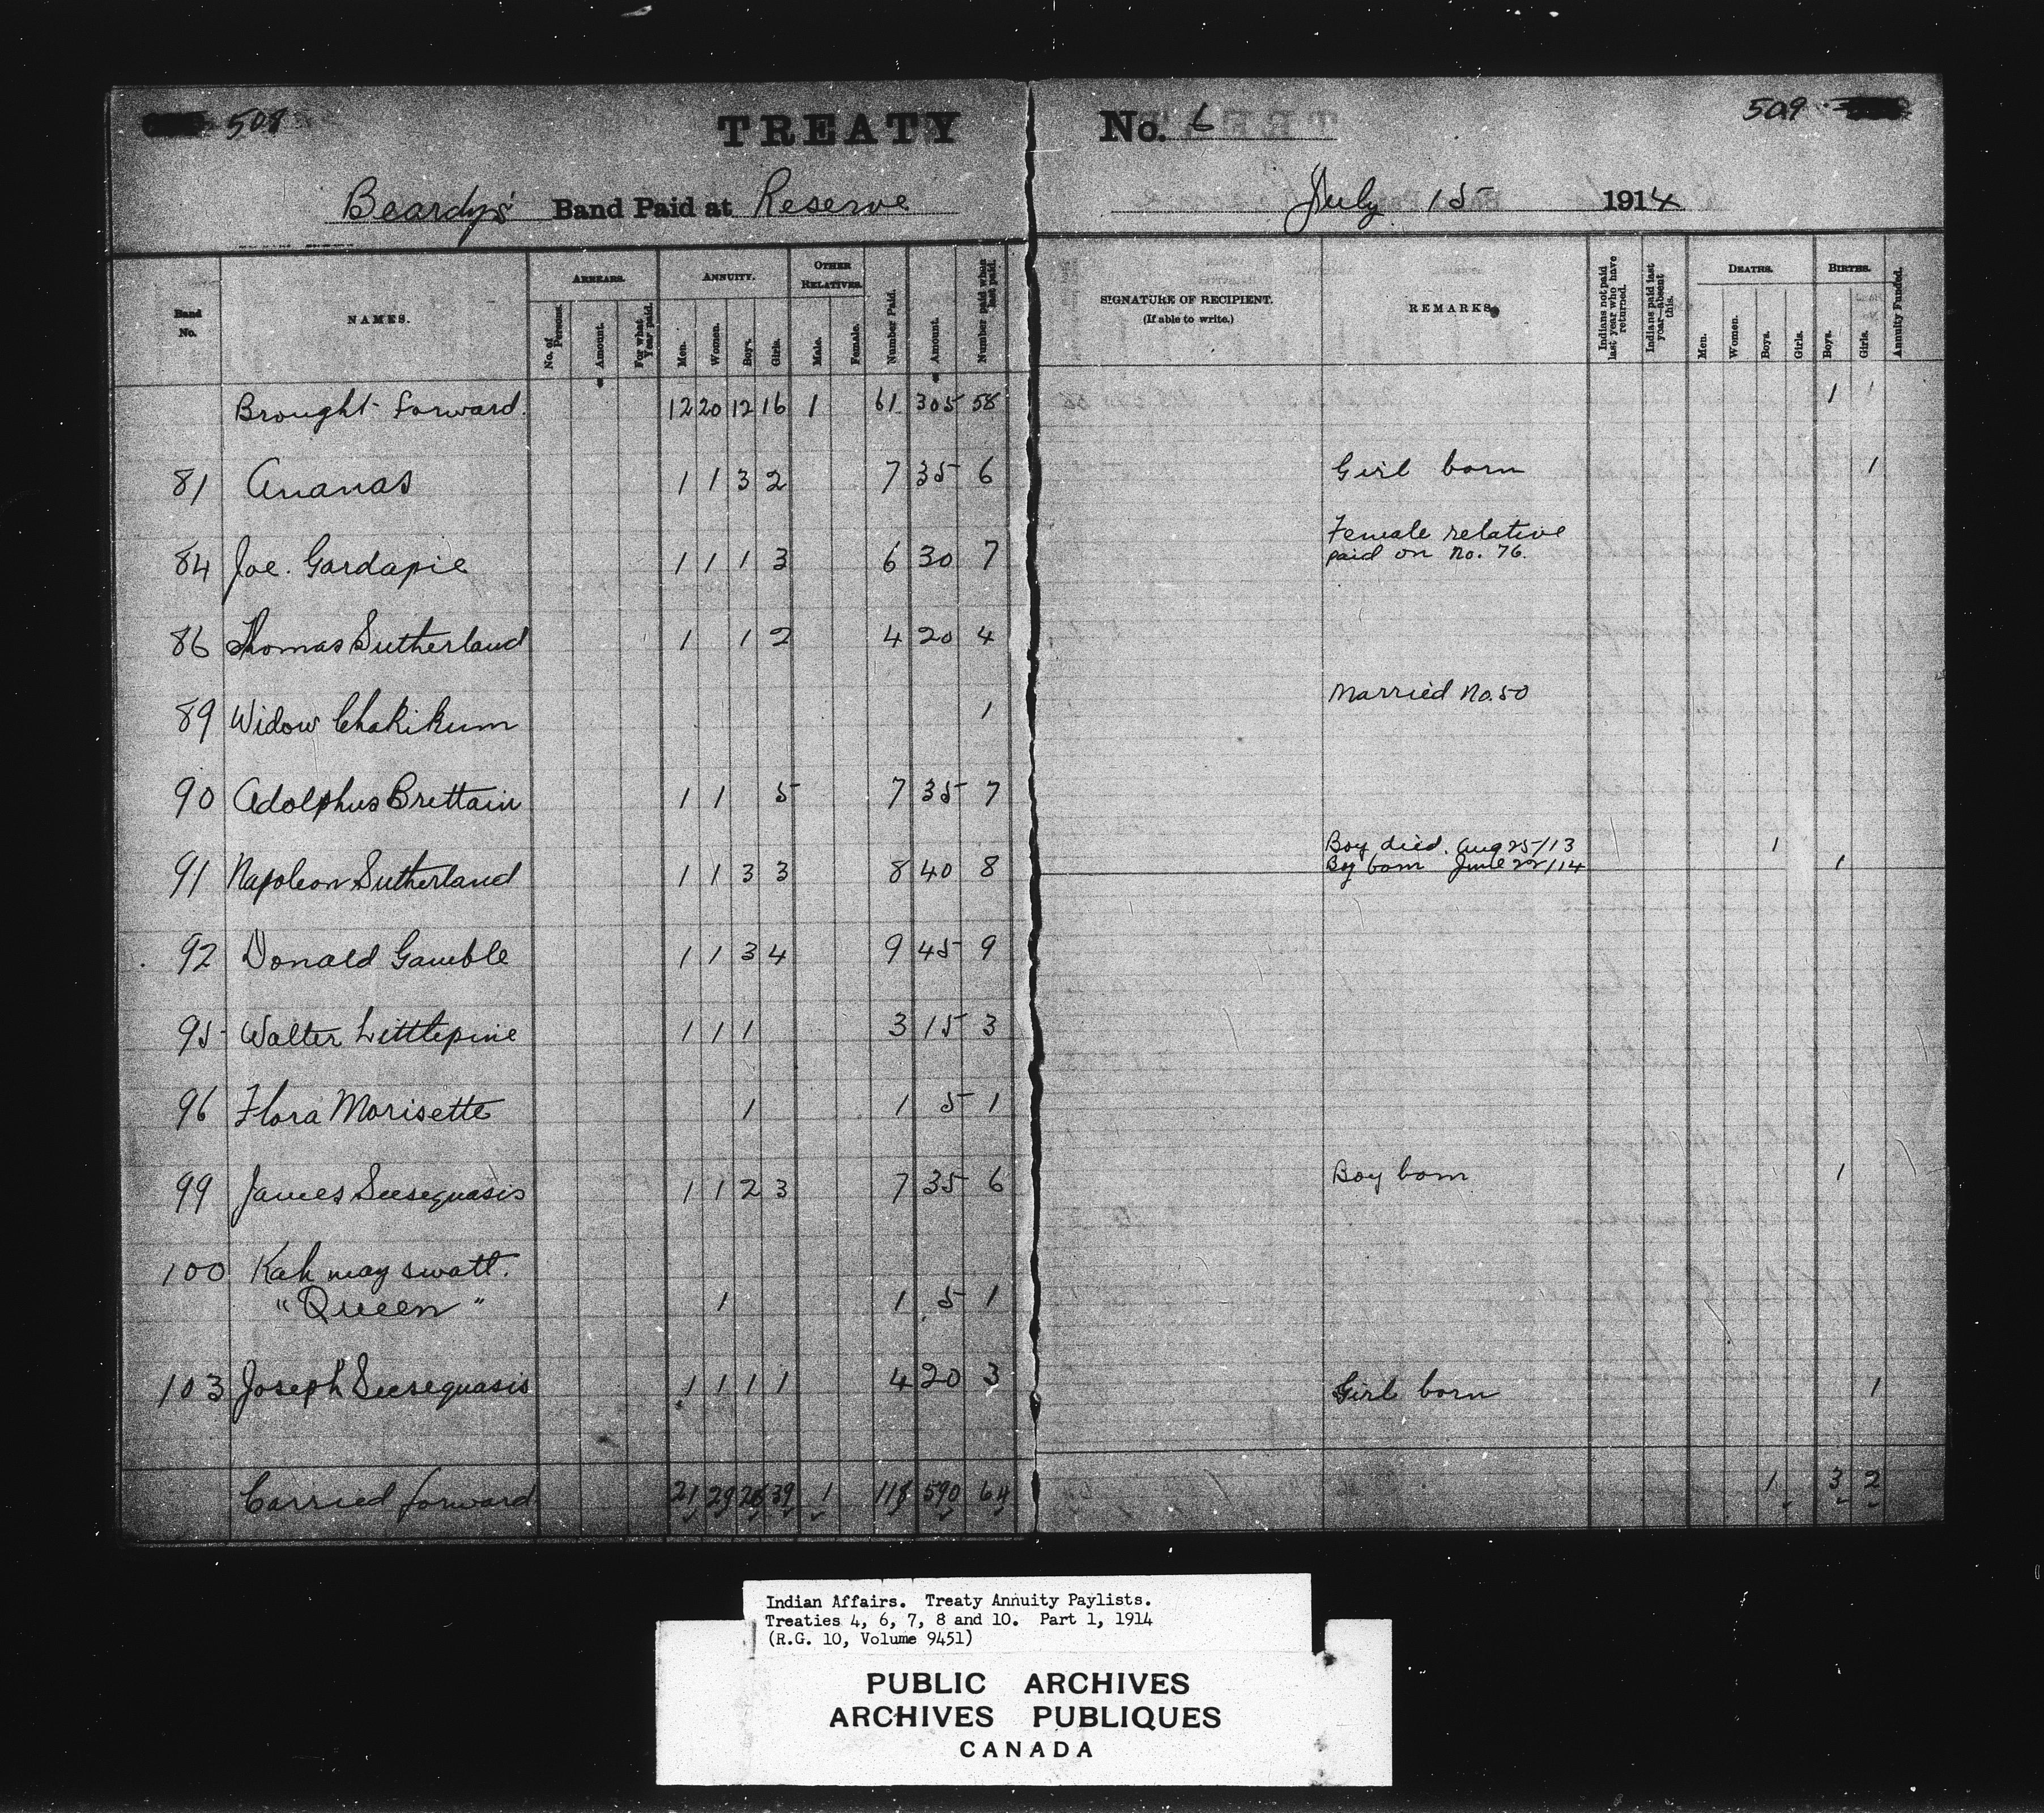 508
TREATY No. 6
509
Beardy's Band Paid at Reserve July 15 1914
Band No.
NAMES.
ARREARS.
No. of Persons.
Amount.
For what Year paid.
ANNUITY.
Men.
Women.
Boys.
Girls.
OTHER RELATIVES.
Male.
Female.
Number Paid.
Amount.
Number paid when last paid.
SIGNATURE OF RECIPIENT.
(If able to write.)
REMARKS.
Indians not paid last year who have returned.
Indians paid last year—absent this.
DEATHS.
Men.
Women.
Boys.
Girls.
BIRTHS.
Boys.
Girls.
Annuity Funded.
Brought forward. 12 20 12 16 1 61 305 58 1 1
81 Ananas 1 1 3 2 7 35 6 Girl born 1
84 Joe. Gardapie 1 1 1 3 6 30 7 Female relative
paid on No. 76.
86 Thomas Sutherland 1 1 2 4 20 4
89 Widow Chakikum 1 Married No. 50
90 Adolphus Brettain 1 1 5 7 35 7
91 Napoleon Sutherland 1 1 3 3 8 40 8 Boy died. Aug 25/13 1
Boy born June 22/14 1
92 Donald Gamble 1 1 3 4 9 45 9
95 Walter Littlepine 1 1 1 3 15 3
96 Flora Morisette 1 1 5 1
99 James Seesequasis 1 1 2 3 7 35 6 Boy born 1
100 Kah may swatt.
"Queen" 1 1 5 1
103 Joseph Seesequasis 1 1 1 1 4 20 3 Girl born 1
Carried forward 21 29 39 1 118 590 64 1 3 2
Indian Affairs. Treaty Annuity Paylists.
Treaties 4, 6, 7, 8 and 10. Part 1, 1914
(R.G. 10, Volume 9451)
PUBLIC ARCHIVES
ARCHIVES PUBLIQUES
CANADA